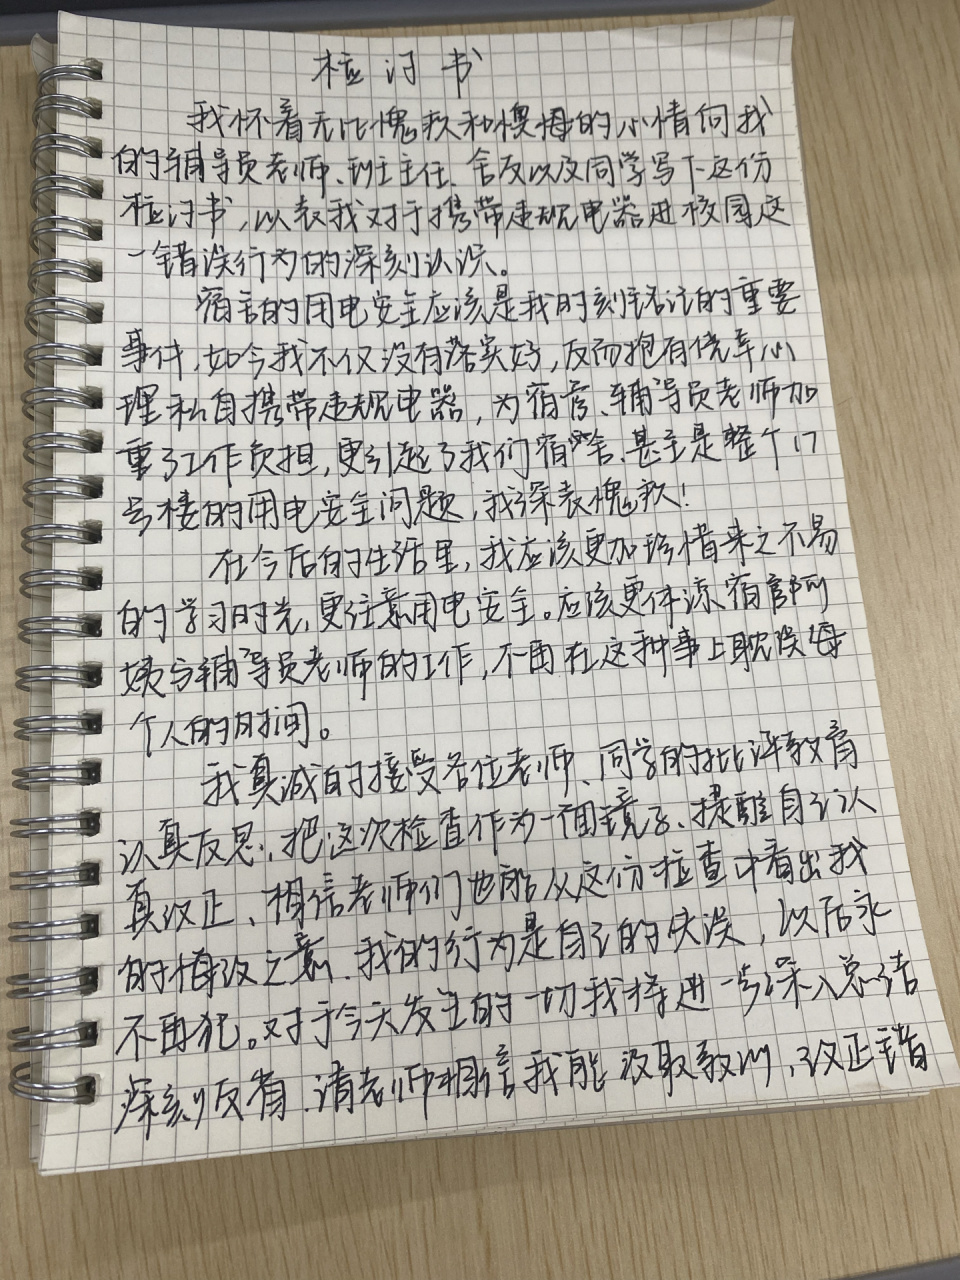 检讨书
我怀着无比愧疚和懊悔的心情向我
的辅导员老师、班主任、舍友以及同学写下这份
检讨书,以表我对于携带违规电器进校园这
一错误行为的深刻认识。
宿舍的用电安全应该是我时刻铭记的重要
事件,如今我不仅没有落实好,反而抱有侥幸心
理私自携带违规电器,为宿管、辅导员老师加
重了工作负担,更引起了我们宿舍、甚至是整个17
号楼的用电安全问题,我深表愧疚!
在今后的生活里,我应该更加珍惜来之不易
的学习时光,更注意用电安全。应该更体谅宿管阿
姨与辅导员老师的工作,不再在这种事上耽误每
个人的时间。
我真诚的接受各位老师、同学的批评教育
认真反思,把这次检查作为一面镜子、提醒自己认
真改正、相信老师们也能从这份检查中看出我
的悔改之意、我的行为是自己的失误,以后永
不再犯。对于今天发生的一切我将进一步深入总结
深刻反省、请老师相信我能汲取教训,改正错